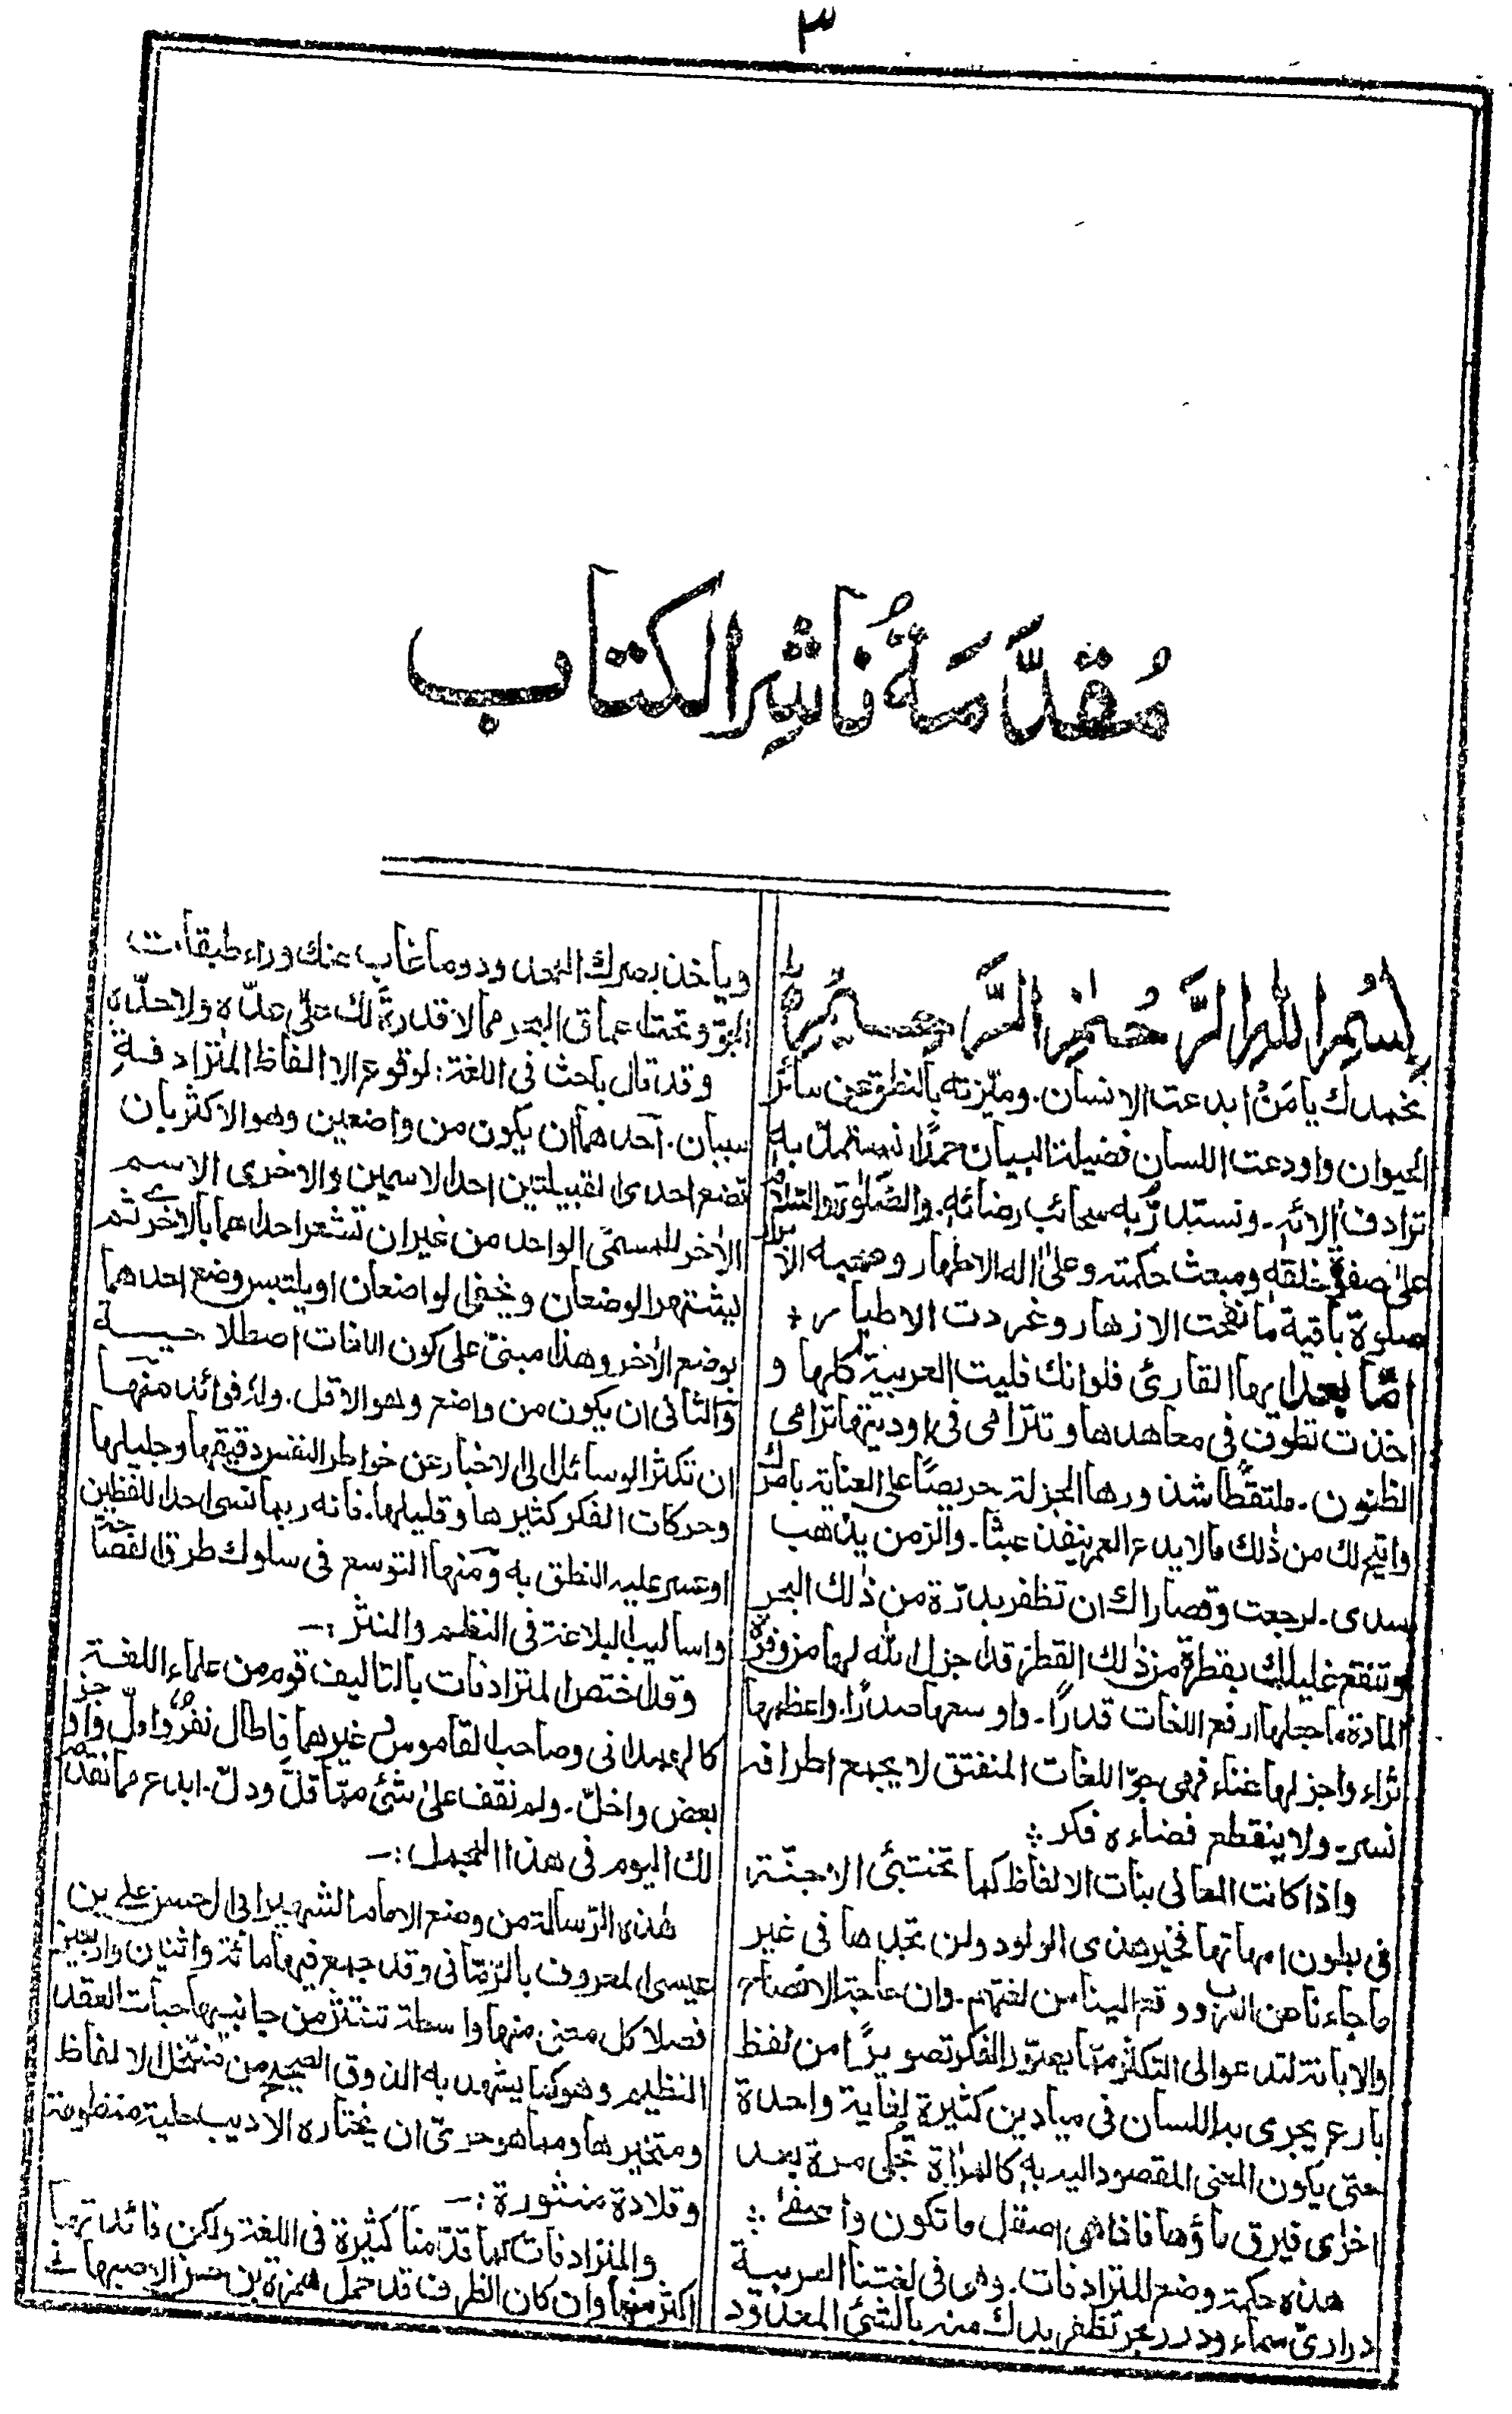 ٣
مُقدَّمَةُ نَاشِرِ الكتاب
بِسْمِ اللهِ الرَّحْمٰنِ الرَّحِيْمِ
نحمدك يا مَنْ ابدعت الانسان. وميّزته بالنطق عن سائر
الحيوان واودعت اللسان فضيلة البيان حمدًا نستهلّ به
ترادف اٰلائہ. ونستدرُّ به سحائب رضائه. والصّلوٰة والسّلام
علىٰ صفوة خلقه ومبعث حكمته وعلىٰ اٰله الاطهار وصحبه الابرار
صلوة باقية ما نفحت الازهار وغردت الاطيار ÷
امّا بعد ايها القارئ فلوانك فليت العربية كلها و
اخذت تطوف في معاهدها وتترامى في اوديتها ترامى
الظنون. ملتقطًا شذورها الجزلة حريصًا على العناية بامرك
واتيح لك من ذٰلك ما لا يدع العمر ينفذ عبثًا. والزمن يذهب
سدى. لرجعت وقصاراك ان تظفر بدرّة من ذٰلك البحر
وتنقع غليلك بقطرة من ذٰلك القطر قد اجزل الله لها من وفرة
المادة ما جعلها ارفع اللغات قدرًا. واوسعها صدرًا. واعظمها
ثراء واجزلها غناء فهى جوّ اللغات المنفتق لا يجمع اطرافه
نسر. ولا ينقطع فضاءه فكر ÷
واذا كانت المعانى بنات الالفاظ كما تختبئ الاجنّة
فى بطون امهاتها فخير هذى الولود ولن تجدها فى غير
ما جاءنا عن العرب ووقع الينا من لغتهم. وان حاجة الافصاح
والابانة لتدعوا الى التكثر ممّا يعتور الفكر تصويرًا من لفظ
بارع يجرى به اللسان فى ميادين كثيرة لغاية واحدة
حتّى يكون المعنى المقصود اليه به كالمرٰاة تُجلى مرة بعد
اخرٰى فيرق ماؤها فاذا هى اصقل ما تكون واصفىٰ ÷
هذه حكمة وضع المترادفات. وهى فى لغتنا العربية
درارىّ سماء ودرر بحر تظفر يدك منه بالشئ المعدود
وياخذ بصرك المحدود وما غاب عنك وراء طبقات
الجوّ وتحت اعماق البحر مما لا قدرة لك علىٰ عدّه ولا حدّه
وقد قال باحث فى اللغة: لوقوع الالفاظ المترادفة
سببان. اٰحدهما ان يكون من واضعين وهو الاكثر بان
تضع احدى القبيلتين احد الاسمين والاخرى الاسم
الاٰخر للمسمّى الواحد من غير ان تشعر احداهما بالاخرى ثم
يشتهر الوضعان ويخفى الواضعان او يلتبس وضع احدهما
بوضع الاٰخر وهذا مبنىّ على كون اللغات اصطلاحية
وٓالثانى ان يكون من واضع وهو الاقل. وله فوائد منٓها
ان تكثر الوسائل الى الاخبار عن خواطر النفس دقيقها وجليلها
وحركات الفكر كثيرها وقليلها. فانه ربما نسى احد اللفظين
او عسر عليه النطق به وٓمنها التوسع فى سلوك طرق الفصاحة
واساليب البلاغة فى النظم والنثر :—
وقد اختص المترادفات بالتاليف قوم من علماء اللغة
كالهمدانى وصاحب القاموس وغيرهما فاطال نفرٌ واملّ واوجز
بعض واخلّ. ولم نقف علىٰ شئ ممّا قلّ ودلّ. ابدع مما نقدمه
لك اليوم فى هذا المجمل :—
هٰذه الرّسالة من وضع الامام الشهير ابى الحسن على بن
عيسى المعروف بالرّمّانى وقد جمع فيها مائة واثنان واربعين
فصلا كل معنى منها واسطة تنتثر من جانبيها حبات العقد
النظيم وهو كما يشهد به الذوق الصحيح من منتخل الالفاظ
ومتخيرها ومما هو حرىّ ان يختاره الاديب حلية منظومة
وقلادة منثورة :—
والمترادفات كما قدّمنا كثيرة فى اللغة ولكن فائدتها
اكثر منها وان كان الظرف قد حمل حمزة بن حسن الاصبهانى